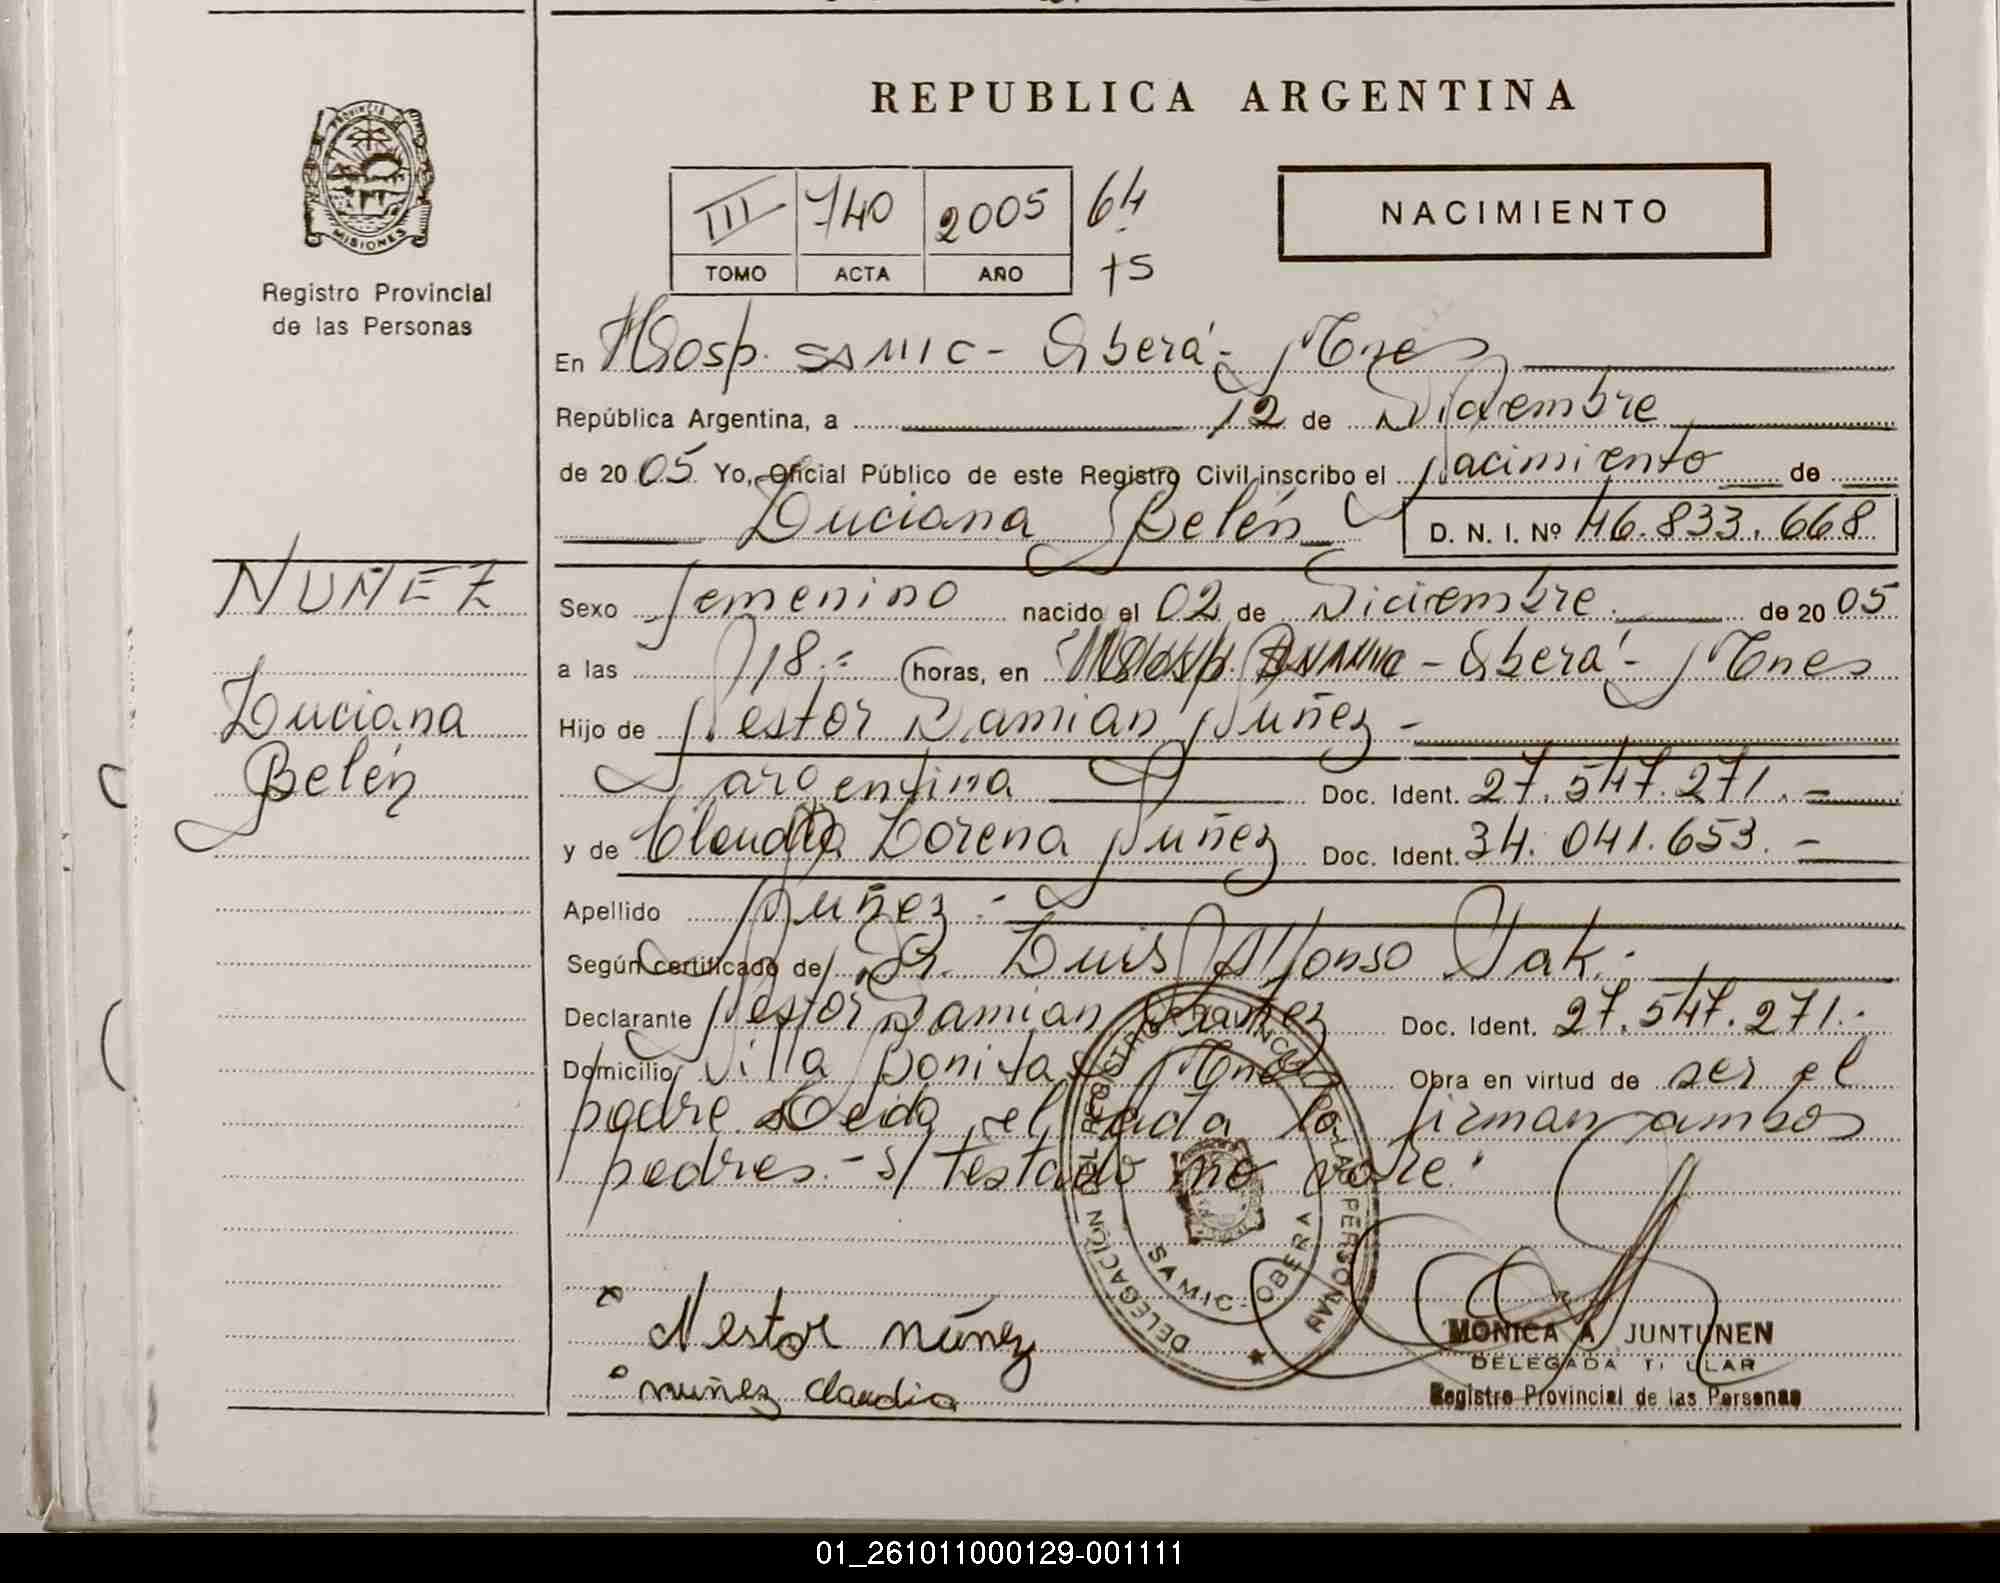 REPUBLICA ARGENTINA
PROVINCIA DE
MISIONES
Registro Provincial
de las Personas
III 740 2005 64
TOMO ACTA AÑO +5
NACIMIENTO
En Hosp. SAMIC - Oberá - Mnes
República Argentina, a 12 de Diciembre
de 2005 Yo, Oficial Público de este Registro Civil inscribo el nacimiento de
Luciana Belén D. N. I. Nº 46.833.668
NUÑEZ
Luciana
Belén
Sexo femenino nacido el 02 de Diciembre de 2005
a las 18.= horas, en Hosp. - Oberá - Mnes
Hijo de Nestor Damian Nuñez -
argentina Doc. Ident. 27.547.271.=
y de Claudia Lorena Nuñez Doc. Ident. 34.041.653.-
Apellido Nuñez.-
Según certificado de Dr. Luis Alfonso Jak.-
Declarante Nestor Damian Nuñez Doc. Ident. 27.547.271.-
Domicilio Villa Bonita Mnes Obra en virtud de ser el
padre Leida el acta la firman ambos
padres.- S/ Testado no vale.
DELEGACIÓN DEL REGISTRO PROVINCIAL DE LAS PERSONAS
SAMIC - OBERA
x Nestor núñez
nuñez claudia
MONICA A. JUNTUNEN
DELEGADA TITULAR
Registro Provincial de las Personas
01_261011000129-001111